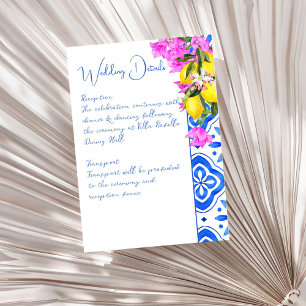 Wedding Details
Reception
The celebration continues with
dinner & dancing following
the ceremony at Villa
Dining Hall
Transport
Transport will be provided
to the ceremony and
reception venue.